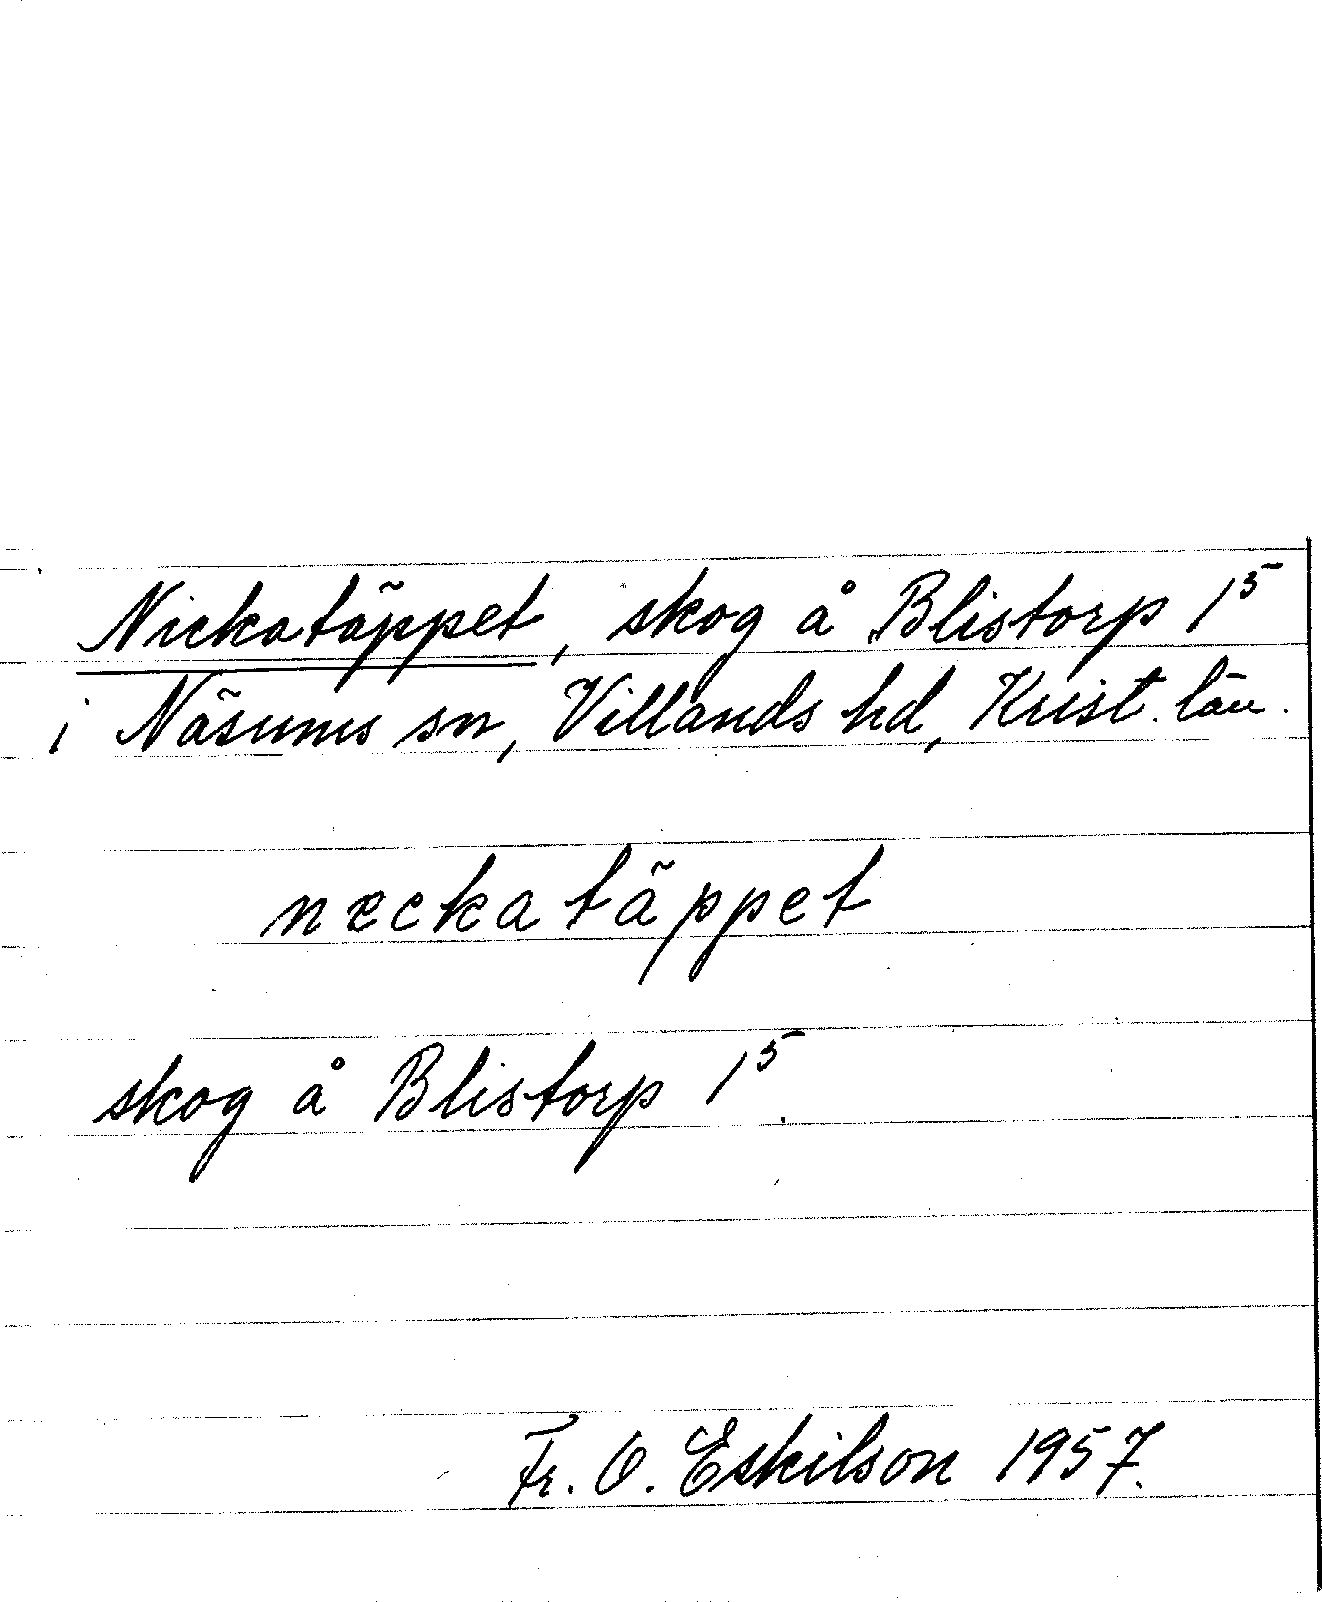 Nickatäppet, skog å Blistorp 1⁵
i Näsums sn, Villands hd, Krist. län.
neckatäppet
skog å Blistorp 1⁵.
Fr. O. Eskilson 1957.